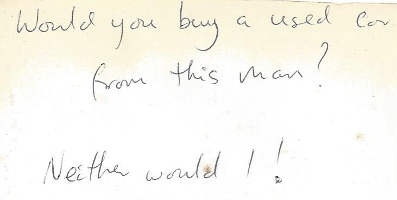 Would you buy a used car
from this man?
Neither would I!